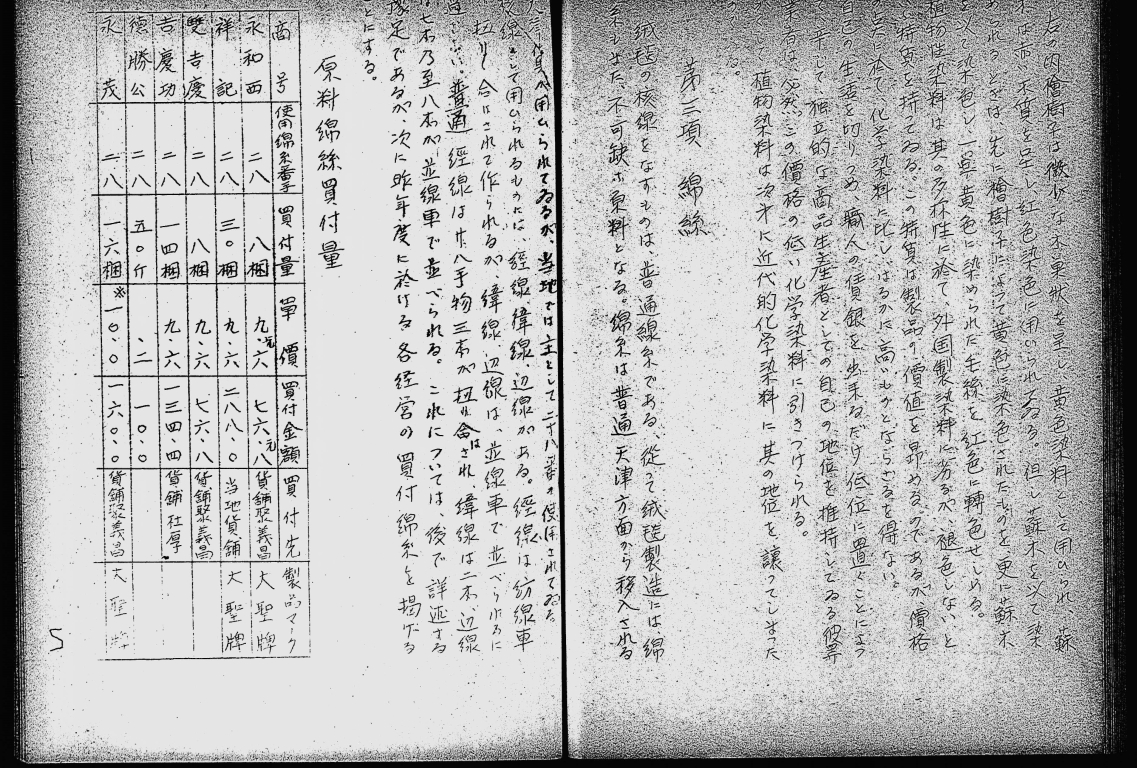 右の内檜樹子は微少な木果状を呈し、黄色染料として用ひられ、蘇
木は赤い木質を呈し紅色染色に用いられてゐる。但し蘇木を以て染
められるときは、先に檜樹子によつて黄色に染色されたものを更に蘇木
を以て染色し、一旦黄色に染められた毛絲を紅色に轉色せしめる。
植物性染料は其の多杯性に於て、外国製染料に劣るが、褪色しないと
特質を持てゐる。この特質は製品の價値を昂めるのであるが、價格
の点に於て化学染料に比し、はるかに高いものとならざるを得ない。
自己の生活を切りつめ、職人の賃銀を出来るだけ低位に置くことによつ
て辛じて独立的な商品生産者としての自己の地位を維持してゐる彼等
業者は、必然この價格の低い化学染料に引きつけられる。
植物染料は次第に近代的化学染料に其の地位を讓つてしまつた
る。
第三項 綿絲
絨毯の核線をなすものは、普通線糸である。從って絨毯製造には綿
糸もまた、不可缺な原料となる。綿糸は普通天津方面から移入される
用ひられてゐるが、当地では主として二十八番の使用されてゐる。
核線として用ひられるものには、經線、緯線、辺線がある。經線は紡線車
で扭り合はされて作られるが、緯線、辺線は、並線車で並べられるに
過ぎない。普通經線は廿八手物三本が扭り合はされ、緯線は二本、辺線
は七本乃至八本が並線車で並べられる。これについては、後で詳述する
豫定であるが、次に昨年度に於ける各経営の買付綿糸を掲げる
ことにする。
原料綿絲買付量
商号 使用綿糸番手 買付量 單價 買付金額 買付先 製品マーク
永和西 二八 八梱 九.六元 七六.八元 貨舗聚義昌 大聖牌
祥記 二八 三〇梱 九.六 二八八.〇 当地貨舗 大聖牌
雙吉慶 二八 八梱 九.六 七六.八 貨舗聚義昌
吉慶功 二八 一四梱 九.六 一三四.四 貨舗社厚
德勝公 二八 五〇斤 .二 一〇.〇
永茂 二八 一六梱 ※一〇.〇 一六〇.〇 貨舗聚義昌 大聖牌
5